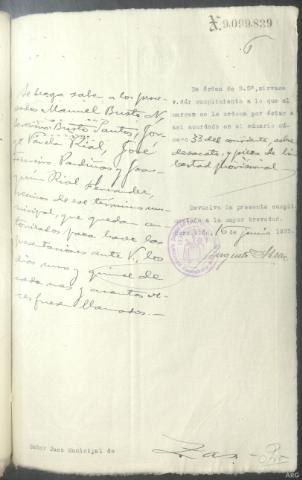 X 9.099.839
6
Se haga saber a los proce-
sados Manuel Busto N,
Busto Santos, Jor-
ge Varela Rial, José
y Joa-
quín Rial
vecinos de ese término mu-
nicipal, que quedan au-
torizados para hacer las
presentaciones ante V. los
días uno y quince de
cada mes y cuantas ve-
ces fueran llamados.
De órden de S.Sª, sírvase
V. dar cumplimiento a lo que al
margen se le ordena por estar a
sí acordado en el sumario nú-
mero 33 del corriente, sobre
desacato, y pieza de li-
bertad provisional
Devuelva la presente cumpli-
a la mayor brevedad.
16 de junio 193
Augusto
Señor Juez Municipal de
Zas
ARG